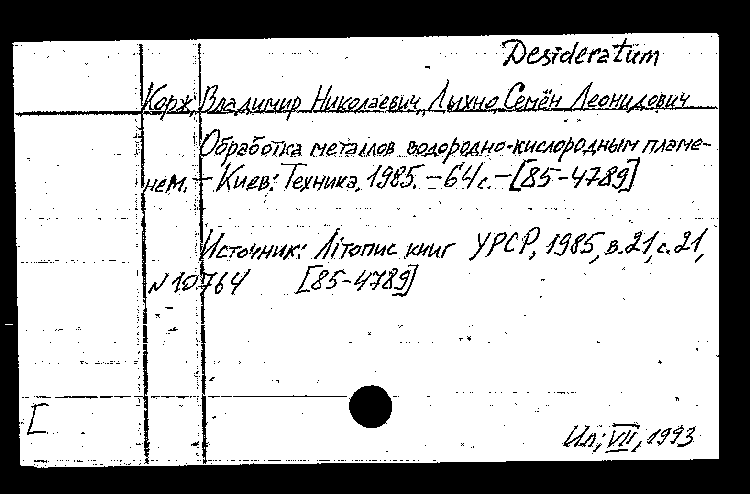 Desideratum
Корж, Владимир Николаевич, Лыхно Семён Леонидович
Обработка металлов водородно-кислородным пламе-
нем. - Киев: Техника, 1985. - 64 с. - [85-4789]
Источник: Літопис книг УРСР, 1985, в.21, с.21,
№10764 [85-4789]
[
Ил; VII, 1993